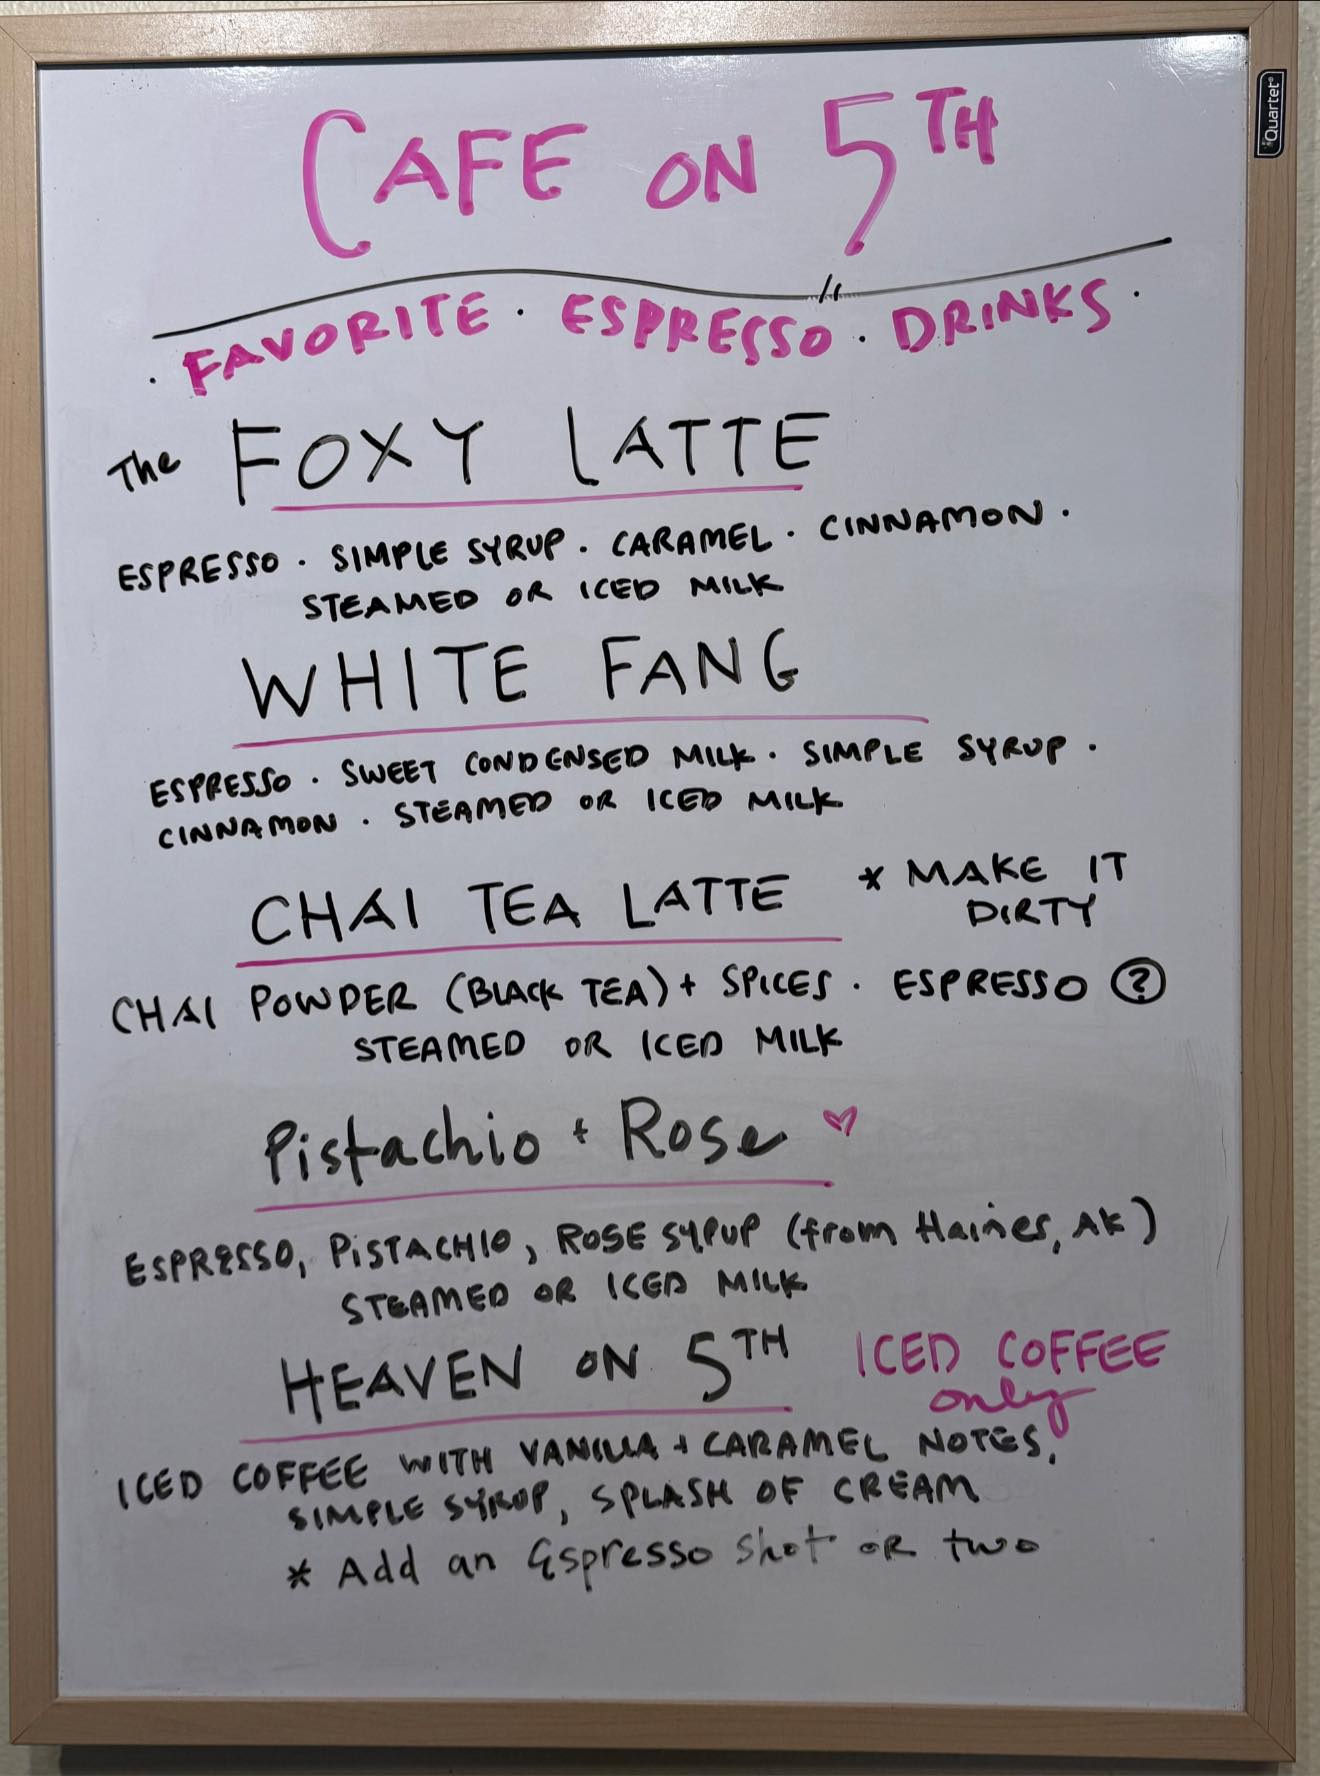 Quartet
CAFE ON 5TH
· FAVORITE · ESPRESSO · DRINKS ·
The FOXY LATTE
ESPRESSO · SIMPLE SYRUP · CARAMEL · CINNAMON ·
STEAMED OR ICED MILK
WHITE FANG
ESPRESSO · SWEET CONDENSED MILK · SIMPLE SYRUP ·
CINNAMON · STEAMED OR ICED MILK
CHAI TEA LATTE * MAKE IT
DIRTY
CHAI POWDER (BLACK TEA) + SPICES · ESPRESSO ?
STEAMED OR ICED MILK
Pistachio + Rose ♡
ESPRESSO, PISTACHIO, ROSE SYPUP (from Haines, AK)
STEAMED OR ICED MILK
HEAVEN ON 5TH ICED COFFEE
only
ICED COFFEE WITH VANILLA + CARAMEL NOTES,
SIMPLE SYRUP, SPLASH OF CREAM
* Add an Espresso shot OR two